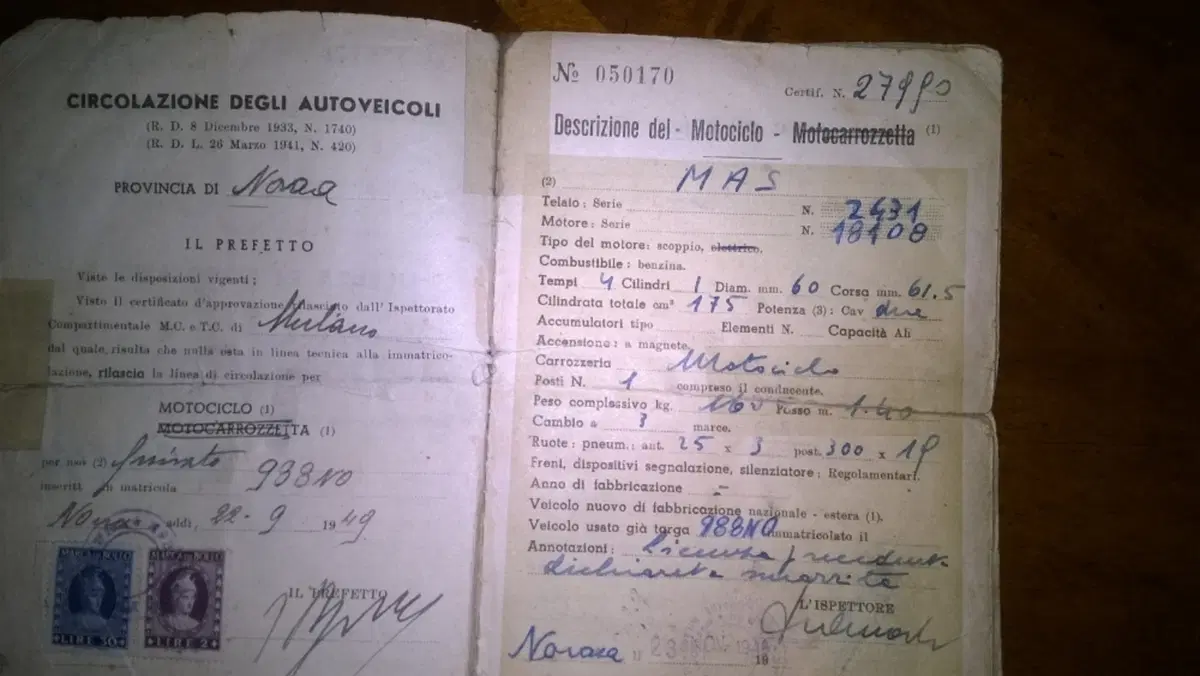 CIRCOLAZIONE DEGLI AUTOVEICOLI
(R. D. 8 Dicembre 1933, N. 1740)
(R. D. L. 26 Marzo 1941, N. 420)
PROVINCIA DI Novara
IL PREFETTO
Viste le disposizioni vigenti;
Visto il certificato d'approvazione rilasciato dall'Ispettorato
Compartimentale M.C. e T.C. di Milano
dal quale risulta che nulla osta in linea tecnica alla immatrico-
lazione, rilascia la linea di circolazione per
MOTOCICLO (1)
MOTOCARROZZETTA (1)
per uso (2) privato
inscritt in matricola 988 NO
Novara addì, 22-9 1949
MARCA DA BOLLO
LIRE
MARCA DA BOLLO
LIRE 2
IL PREFETTO
No 050170
Certif. N. 27990
Descrizione del - Motociclo - Motocarrozzetta (1)
(2) MAS
Telaio: Serie N. 2431
Motore: Serie N. 18108
Tipo del motore: scoppio, elettrico.
Combustibile: benzina.
Tempi 4 Cilindri 1 Diam. mm. 60 Corsa mm. 61.5
Cilindrata totale cm³ 175 Potenza (3): Cav due
Accumulatori tipo Elementi N. Capacità Ah
Accensione: a magnete.
Carrozzeria Motociclo
Posti N. 1 compreso il conducente.
Peso complessivo kg. 160 Passo m. 1.40
Cambio a 3 marce.
Ruote: pneum.: ant. 25 x 3 post. 300 x 19
Freni, dispositivi segnalazione, silenziatore: Regolamentari.
Anno di fabbricazione -
Veicolo nuovo di fabbricazione nazionale - estera (1).
Veicolo usato già targa 988 NO immatricolato il
Annotazioni: Licenza precedente
dichiarata smarrita
L'ISPETTORE
Novara li 23 NOV. 194 19